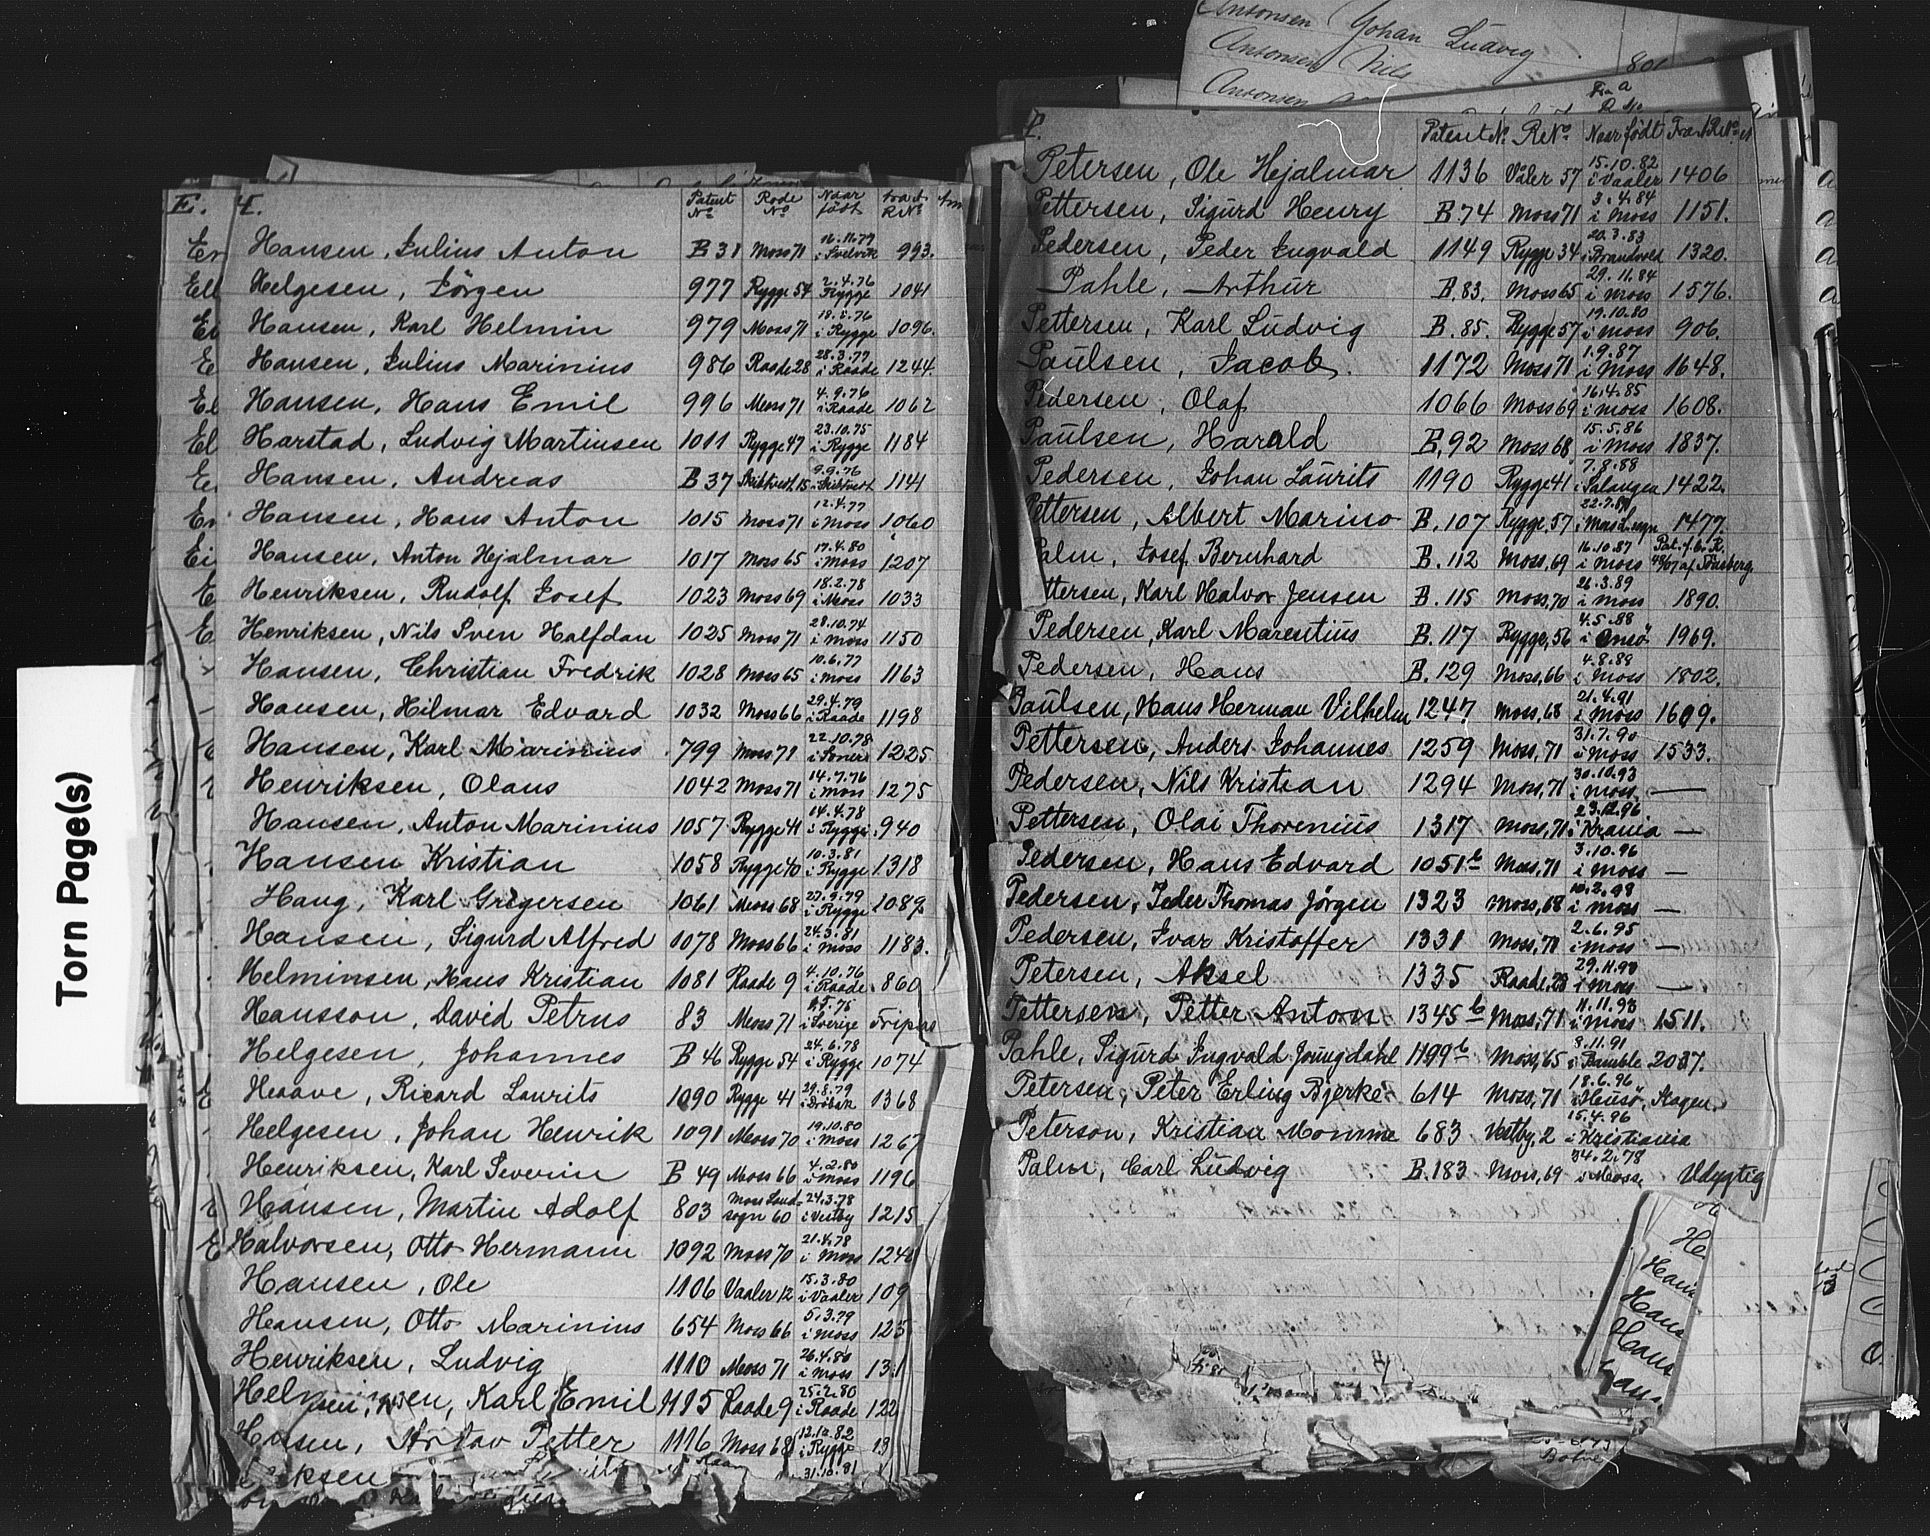 Torn Page(s)
E. 4. Patent No Rode No Naar født
Hansen, Julius Anton B 31 Moss 71 16.11.79 i Svelvik 993.
Helgesen, Jörgen 977 Rygge 54 2.4.76 Rygge 1041
Hansen, Karl Helmin 979 Moss 71 i Rygge 1096.
Hansen, Julius Marinius 986 Raade 28 28.3.77 i Raade 1244
Hansen, Hans Emil 996 Moss 71 4.9.76 i Raade 1062
Harstad, Ludvig Martinsen 1011 Rygge 47 23.10.75 i Rygge 1184
Hansen, Andreas B 37 Skibtvedt 15 9.9.76 i Skibtvedt 1141
Hansen, Hans Anton 1015 Moss 71 12.4.77 i Moss 1060
Hansen, Anton Hjalmar 1017 Moss 65 17.4.80 i Moss 1207
Henriksen, Rudolf Josef 1023 Moss 69 18.2.78 i Moss 1033
Henriksen, Nils Sven Halfdan 1025 Moss 71 28.10.74 i Moss 1150
Hansen, Christian Fredrik 1028 Moss 65 10.6.77 i Moss 1163
Hansen, Hilmar Edvard 1032 Moss 66 29.4.79 i Raade 1198
Hansen, Karl Marinius 799 Moss 71 22.10.78 1225
Henriksen, Olaus 1042 Moss 71 14.7.76 i Moss 1275
Hansen, Anton Marinius 1057 Rygge 41 14.4.78 i Rygge 940
Hansen Kristian 1058 Rygge 40 10.3.81 i Rygge 1318
Haug, Karl Gregersen 1061 Moss 68 i Rygge 1089
Hansen, Sigurd Alfred 1078 Moss 66 24.3.81 i Moss 1183.
Helminsen, Hans Kristian 1081 Raade 9 4.10.76 i Raade 860
Hansson, David Petrus 83 Moss 71 i Sverige Fripas
Helgesen, Johannes B 46 Rygge 54 24.6.78 i Rygge 1074
Haave, Ricard Laurits 1090 Rygge 41 29.8.79 i Dröbak 1368
Helgesen, Johan Henrik 1091 Moss 70 19.10.80 i Moss 1267
Henriksen, Karl Severin B 49 Moss 66 4.2.80 i Moss 1196
Hansen, Martin Adolf 803 Moss Landsogn 60 24.3.78 i Vestby 1215
Halvorsen, Otto Hermann 1092 Moss 70 21.4.78 i Moss 1246
Hansen, Ole 1106 Vaaler 12 15.3.80 i Vaaler 109
Hansen, Otto Marinius 654 Moss 66 5.3.79 i Moss 125
Henriksen, Ludvig 1110 Moss 71 26.4.80 i Moss 131
Karl Emil 1115 Raade 9 25.2.80 i Raade 122
Petter 1116 Moss 68 12.10.82 i Rygge 13
31.10.81
Antonsen Johan Ludvig
Antonsen Nils 801
Antonsen
P. Patent No. RNo. Naar født Fra A RNo.
Petersen, Ole Hjalmar 1136 Våler 57 15.10.82 i Vaaler 1406
Pettersen, Sigurd Henry B.74 Moss 71 3.4.84 i Moss 1151.
Pedersen, Peder Ingvald 1149 Rygge 34 20.3.83 i Brandvold 1320.
Pahle, Arthur B.83. Moss 65 29.11.84 i Moss 1576.
Pettersen, Karl Ludvig B.85. Rygge 57 19.10.80 i Moss 906.
Paulsen, Jacob. 1172 Moss 71 1.9.87 i Moss 1648.
Pedersen, Olaf 1066 Moss 69 16.4.85 i Moss 1608.
Paulsen, Harald B.92 Moss 68 15.5.86 i Moss 1837.
Pedersen, Johan Laurits 1190 Rygge 41 7.8.88 i Salangen 1422.
Pettersen, Albert Marino B.107 Rygge, 57 i Moss L.sogn 1477
Palm, Josef Bernhard B.112 Moss, 69 16.10.87 i Moss Pat. f. b. R. 48/07 af Tönsberg
ttersen, Karl Halvor Jensen B.115 Moss, 70 26.3.89 i Moss 1890.
Pedersen, Karl Marentius B.117 Rygge, 56 4.5.88 i Onsö 1969.
Pedersen, Hans B.129 Moss, 66 4.8.89 i Moss 1802.
Paulsen, Hans Herman Vilhelm 1247 Moss, 68 21.4.91 i Moss 1609.
Pettersen, Anders Johannes 1259 Moss, 71 31.7.90 i Moss 1533.
Pedersen, Nils Kristian 1294 Moss, 71 30.10.93 i Moss —
Pettersen, Olai Thorenius 1317 Moss, 71 23.12.96 i Krania —
Pedersen, Hans Edvard 1051 b Moss, 71 3.10.96 i Moss —
Pedersen, Peder Thomas Jörgen 1323 Moss, 68 10.2.98 i Moss —
Pedersen, Ivar Kristoffer 1331 Moss, 71 2.6.95 i Moss —
Petersen, Aksel 1335 Raade, 23 i Moss —
Pettersen, Petter Anton 1345 b Moss, 71 11.11.93 i Moss 1511.
Pahle, Sigurd Ingvald Joungdahl 1199 b Moss, 65 8.11.91 i Bamble 2037.
Petersen, Peter Erling Bjerke 614 Moss, 71 18.6.96 i Husö, Skagen.
Peterson, Kristian Momme 683 Vestby, 2 15.4.96 i Kristiania
Palm, Carl Ludvig B.183 Moss, 69 24.2.78 i Moss. Udygtig
He
Hans
Hans
Hans